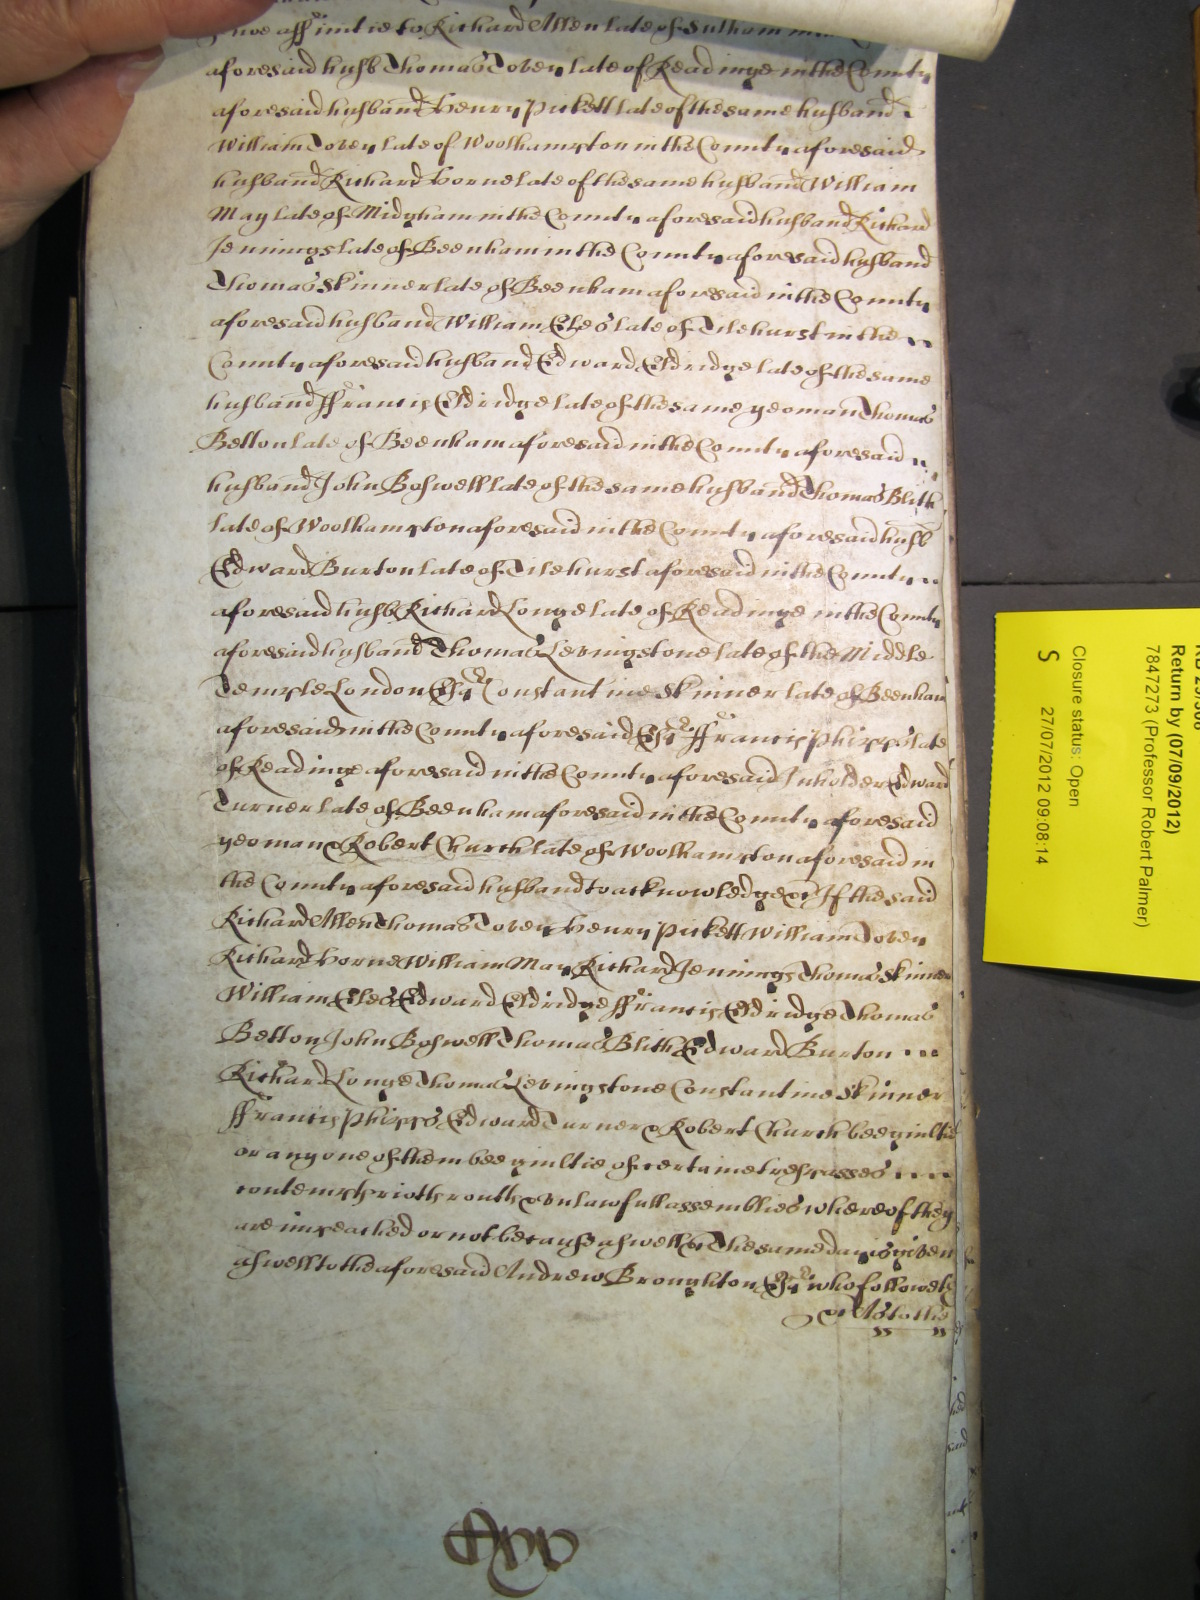 affinitie to Richard Allen late of Sulham
aforesaid husb Thomas Tovey late of Readinge in the County
aforesaid husband Henry Pickett late of the same husband
William Tovey late of Woolhampton in the County aforesaid
husband Richard Horne late of the same husband William
May late of Midgham in the County aforesaid husband Richard
Jennings late of Beenham in the County aforesaid husband
Thomas Skinner late of Beenham aforesaid in the County
aforesaid husband William Eles late of Tilehurst in the
County aforesaid husband Edward Eldridge late of the same
husband ffrancis Eldridge late of the same yeoman Thomas
Betton late of Beenham aforesaid in the County aforesaid
husband John Boswell late of the same husband Thomas Blith
late of Woolhampton aforesaid in the County aforesaid husb
Edward Burton late of Tilehurst aforesaid in the County
aforesaid husb Richard Longe late of Readinge in the County
aforesaid husband Thomas Levingstone late of the Middle
Temple London Esqr Constantine Skinner late of Beenham
aforesaid in the County aforesaid Esqr ffrancis Phipps late
of Readinge aforesaid in the County aforesaid Inholder Edward
Turner late of Beenham aforesaid in the County aforesaid
yeoman & Robert Church late of Woolhampton aforesaid in
the County aforesaid husband to acknowledge &c If the said
Richard Allen Thomas Tovey Henry Pickett William Tovey
Richard Horne William May Richard Jennings Thomas Skinner
William Eles Edward Eldridge ffrancis Eldridge Thomas
Betton John Boswell Thomas Blith Edward Burton
Richard Longe Thomas Levingstone Constantine Skinner
ffrancis Phipps Edward Turner & Robert Church bee guiltie
or any one of them bee guiltie of certaine trespasses
contempts riotts routts & unlawfull assemblies whereof they
are impeached or not because aswell &c The same day is given
aswell to the aforesaid Andrew Broughton Esqr who followeth
&c As to the
Return by (07/09/2012)
7847273 (Professor Robert Palmer)
Closure status: Open
S 27/07/2012 09:08:14